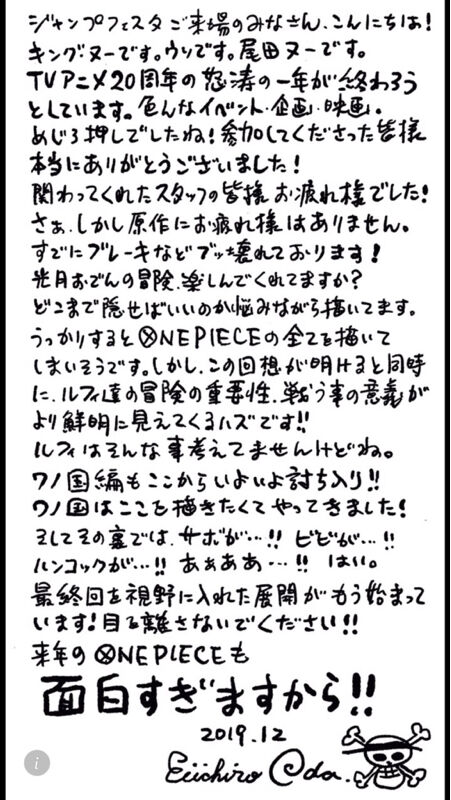 ジャンプフェスタご来場のみなさん、こんにちは!
キング・ヌーです。ウソです。尾田ヌーです。
TVアニメ20周年の怒涛の一年が終わろう
としています。色んなイベント・企画・映画。
めじろ押しでしたね!参加してくださった皆様
本当にありがとうございました!
関わってくれたスタッフの皆様お疲れ様でした!
さぁ、しかし原作にお疲れ様はありません。
すでにブレーキなどブッ壊れております!
光月おでんの冒険、楽しんでくれてますか?
どこまで隠せばいいのか悩みながら描いてます。
うっかりするとONEPIECEの全てを描いて
しまいそうです。しかし、この回想が明けると同時
に、ルフィ達の冒険の重要性、戦う事の意義が
より鮮明に見えてくるハズです!!
ルフィはそんな事考えてませんけどね。
ワノ国編もここからいよいよ討ち入り!!
ワノ国はここを描きたくてやってきました!
そしてその裏では、サボが…!! ビビが…!!
ハンコックが…!! あぁああ…!! はい。
最終回を視野に入れた展開がもう始まって
います!目を離さないでください!!
来年のONEPIECEも
面白すぎますから!!
2019.12
Eiichiro Oda.